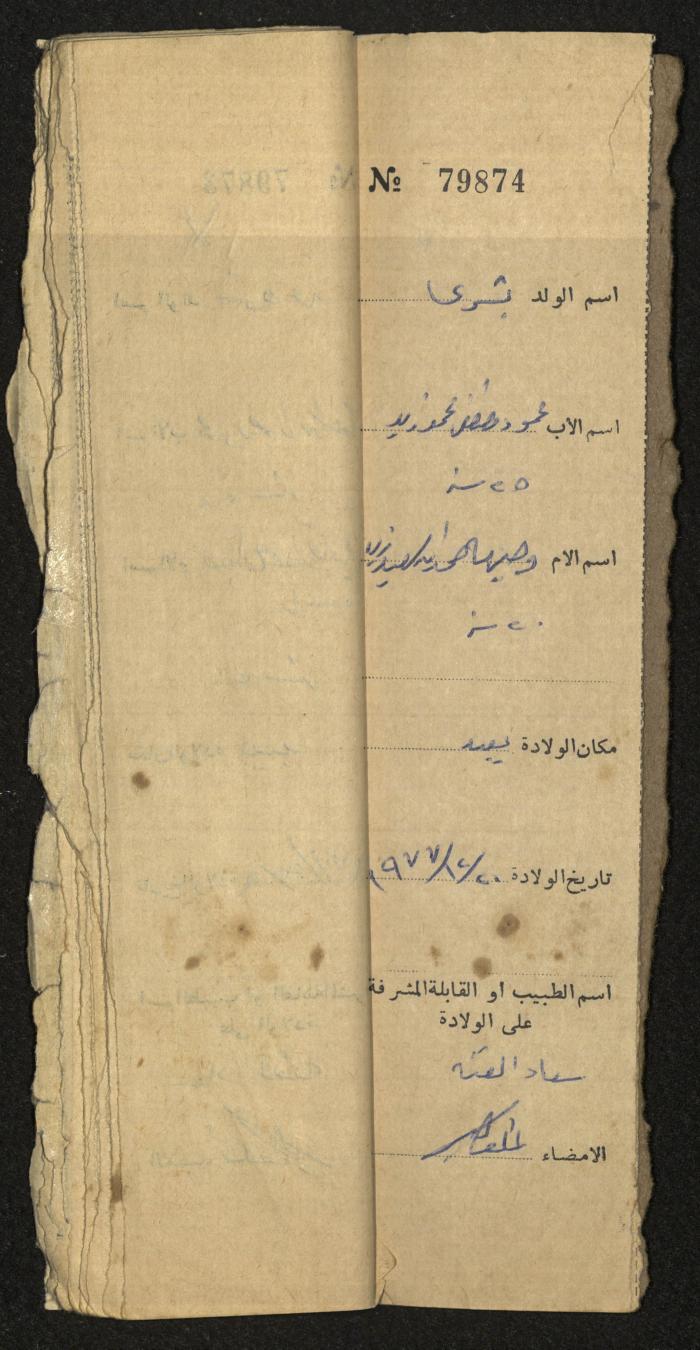 № 79874
اسم الولد بشرى
اسم الاب محمود مصطفى محمود زيد
٢٥ سنة
اسم الام وجيهه
٢٠ سنة
مكان الولادة يعبد
تاريخ الولادة ٢٠/١٢/١٩٧٧
اسم الطبيب او القابلة المشرفة
على الولادة
سعاد
الامضاء